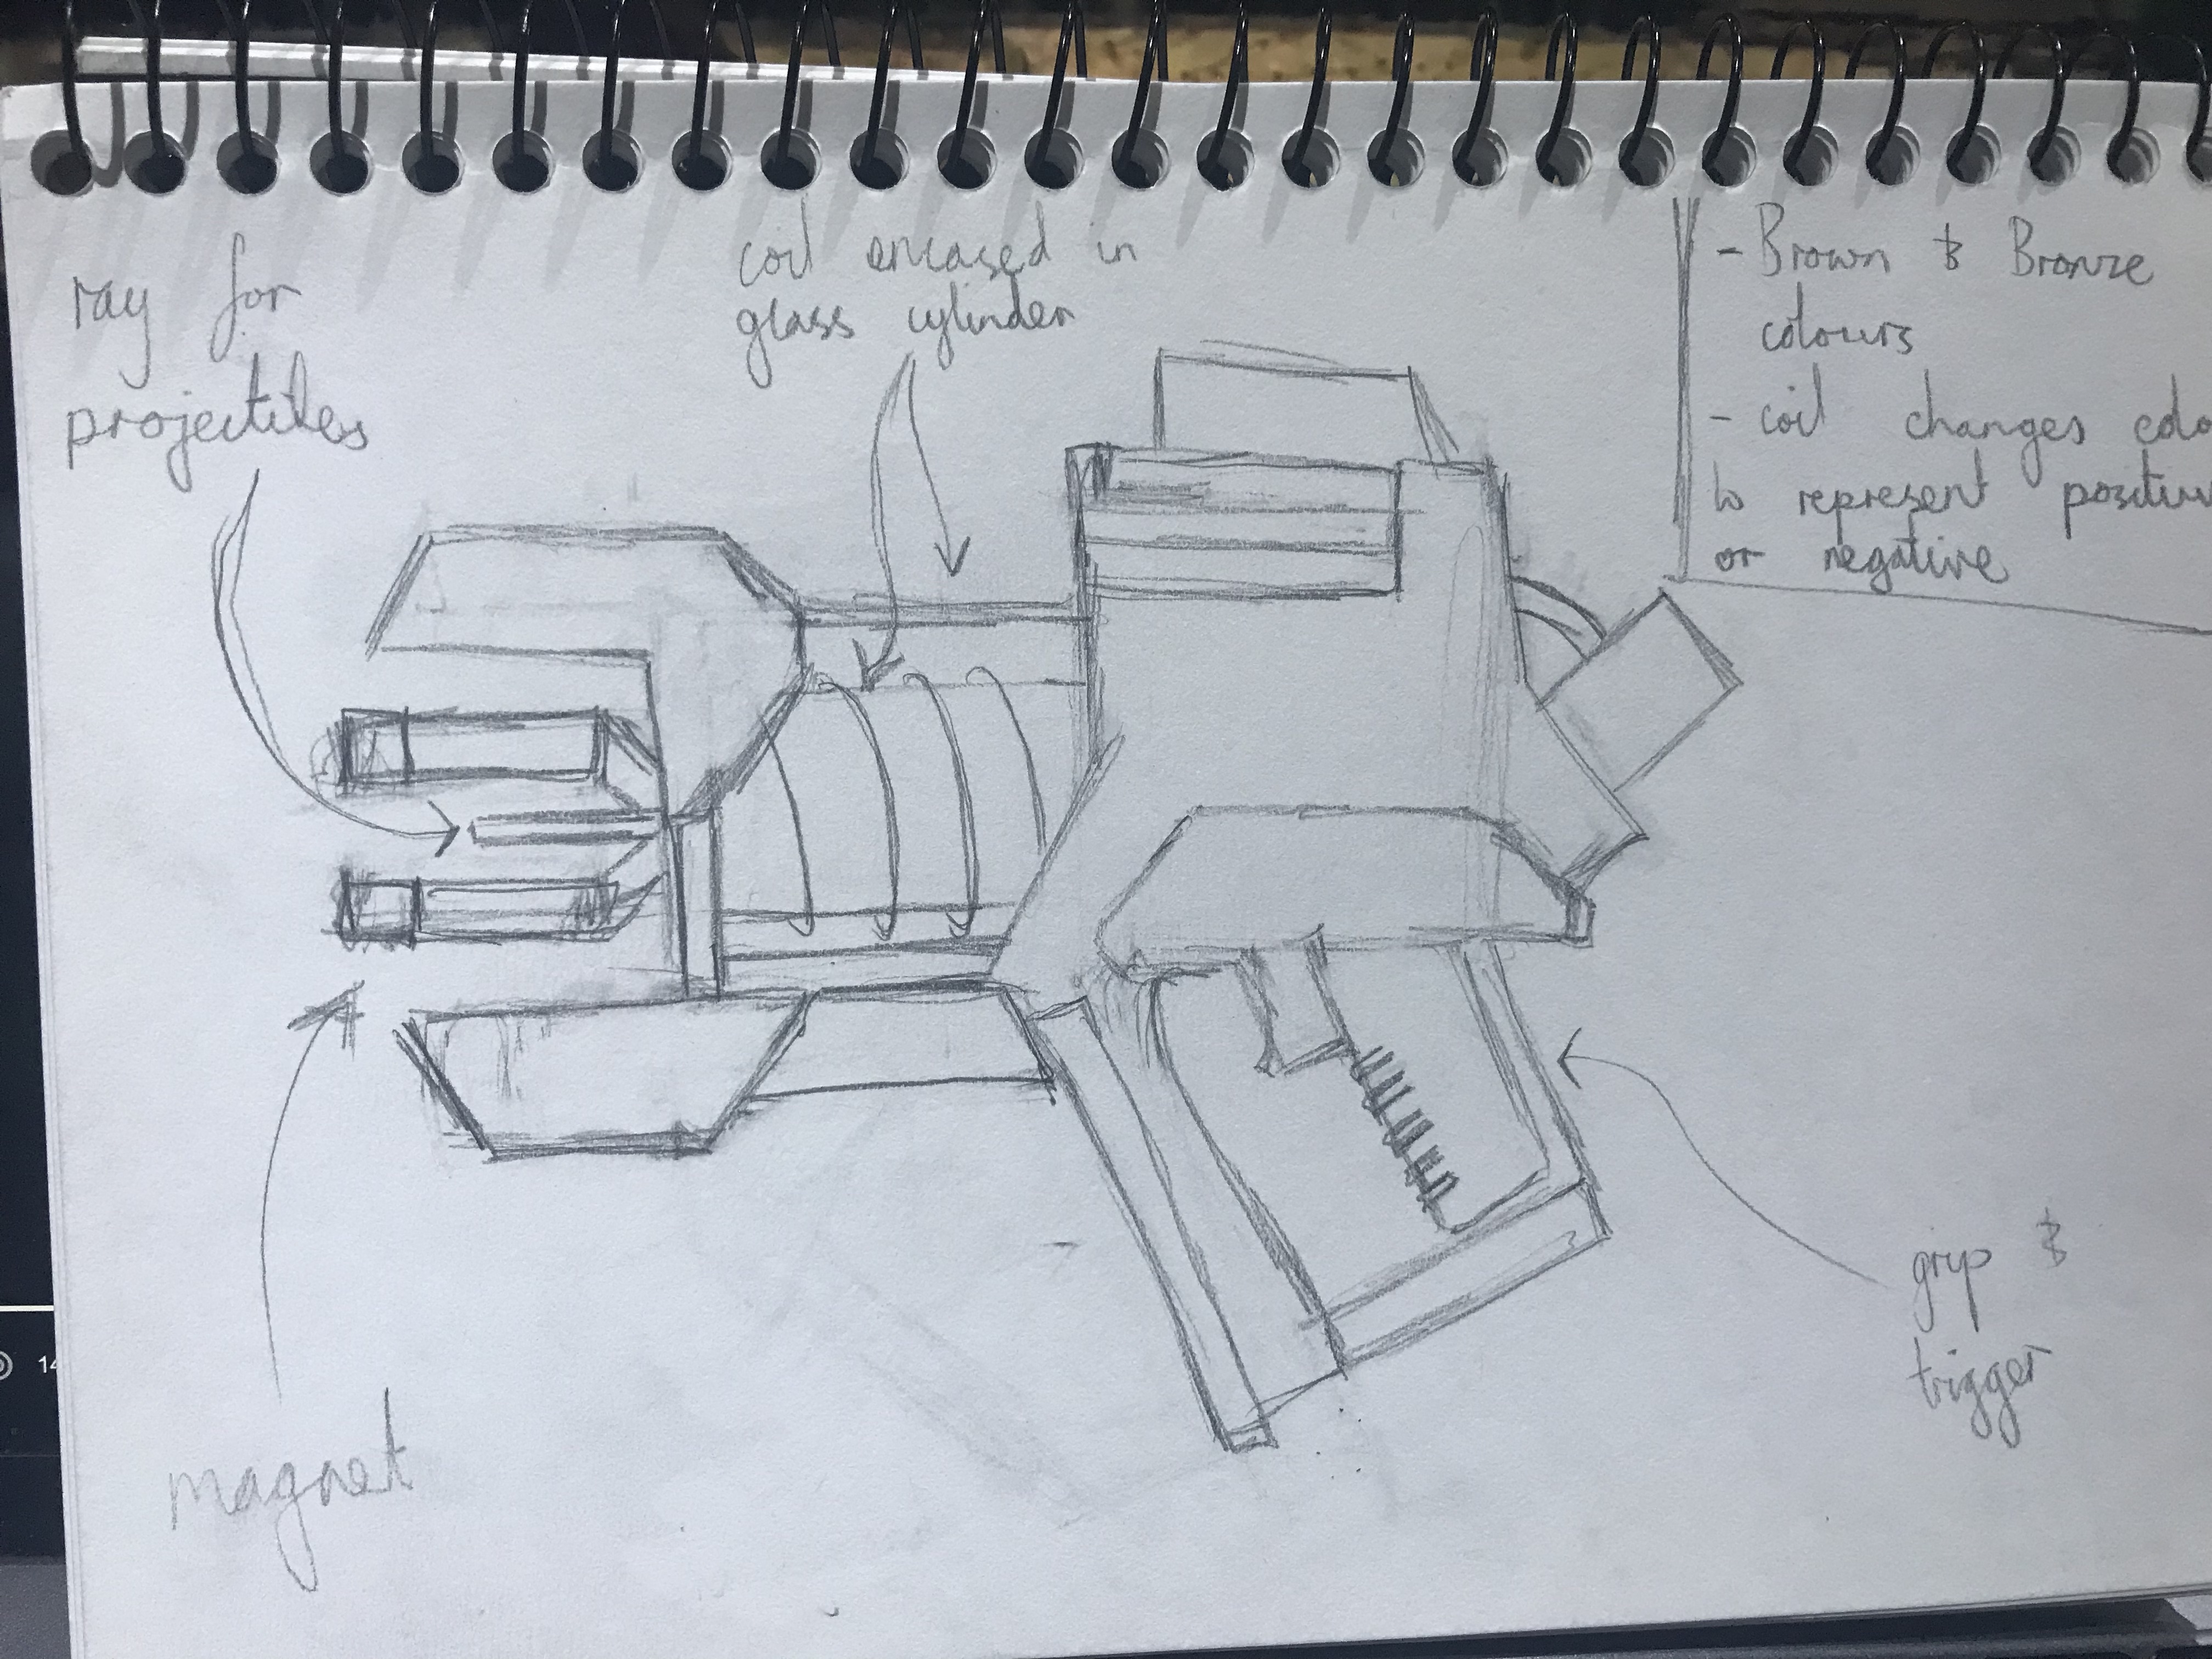 ray for
projectiles
coil encased in
glass cylinder
- Brown & Bronze
colours
- coil changes colo
to represent positiv
or negative
magnet
grip &
trigger
14